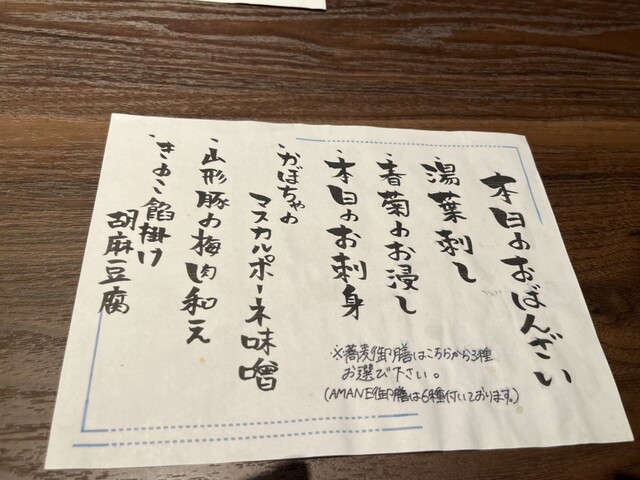 本日のおばんざい
・湯葉刺し
・春菊のお浸し
・本日のお刺身
・かぼちゃの
マスカルポーネ味噌
・山形豚の梅肉和え
・きのこ餡掛け
胡麻豆腐
※蕎麦御膳はこちらから3種
お選び下さい。
(AMANE御膳は6種付いております。)